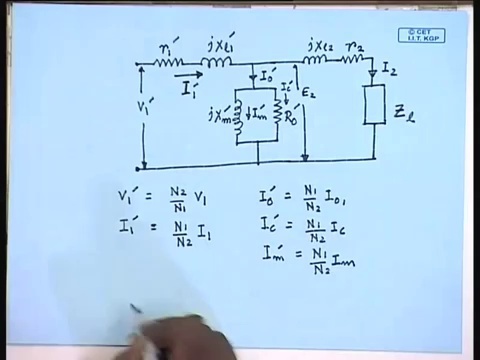 © CET
I.I.T. KGP
r₁′ jxℓ₁′ jxℓ₂ r₂
I₁′ I₀′ I₂
V₁′ jxm′ Im′ Ic′ R₀′ E₂ Zℓ
V₁′ = N₂/N₁ V₁ I₀′ = N₁/N₂ I₀₁
I₁′ = N₁/N₂ I₁ Ic′ = N₁/N₂ Ic
Im′ = N₁/N₂ Im